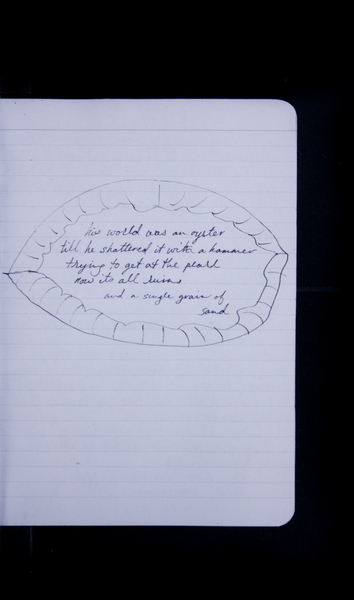 his world was an oyster
till he shattered it with a hammer
trying to get at the pearl
now its all ruins
and a single grain of
sand